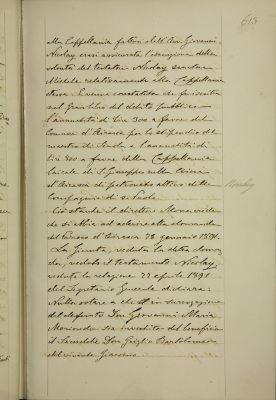 613
alla Cappellania fattane dell'Avv. Giovanni
Nicolay essi assicurata l'esecuzione della
volontà del testatore Nicolay
Michele relativamente alla Cappellania
stessa. Ee come constatato che
sul Gran libro del debito pubblico
l'annualità di lire 300 a favore del
Comune d'Airasca per lo stipendio del
maestro di scuola e l'annualità di
lire 800 a favore della Cappellania
laicale di S. Giuseppe nella chiesa
d'Airasca di patronato attivo della
Compagnia di S. Paolo.
Ciò stante il direttore
che si abbia ad aderire alla domanda
del Parroco d'Airasca 28 gennaio 1891.
La Giunta, veduta la detta doman-
da, veduto il testamento Nicolay,
veduta la relazione 22 aprile 1891
del Segretario Generale dichiara:
Nulla ostare a che in surrogazione
del defunto Don Giovanni Maria
sia investito del beneficio
il Sacerdote Don Griglio Bartolomeo
del vivente Giacomo.
Nicolay